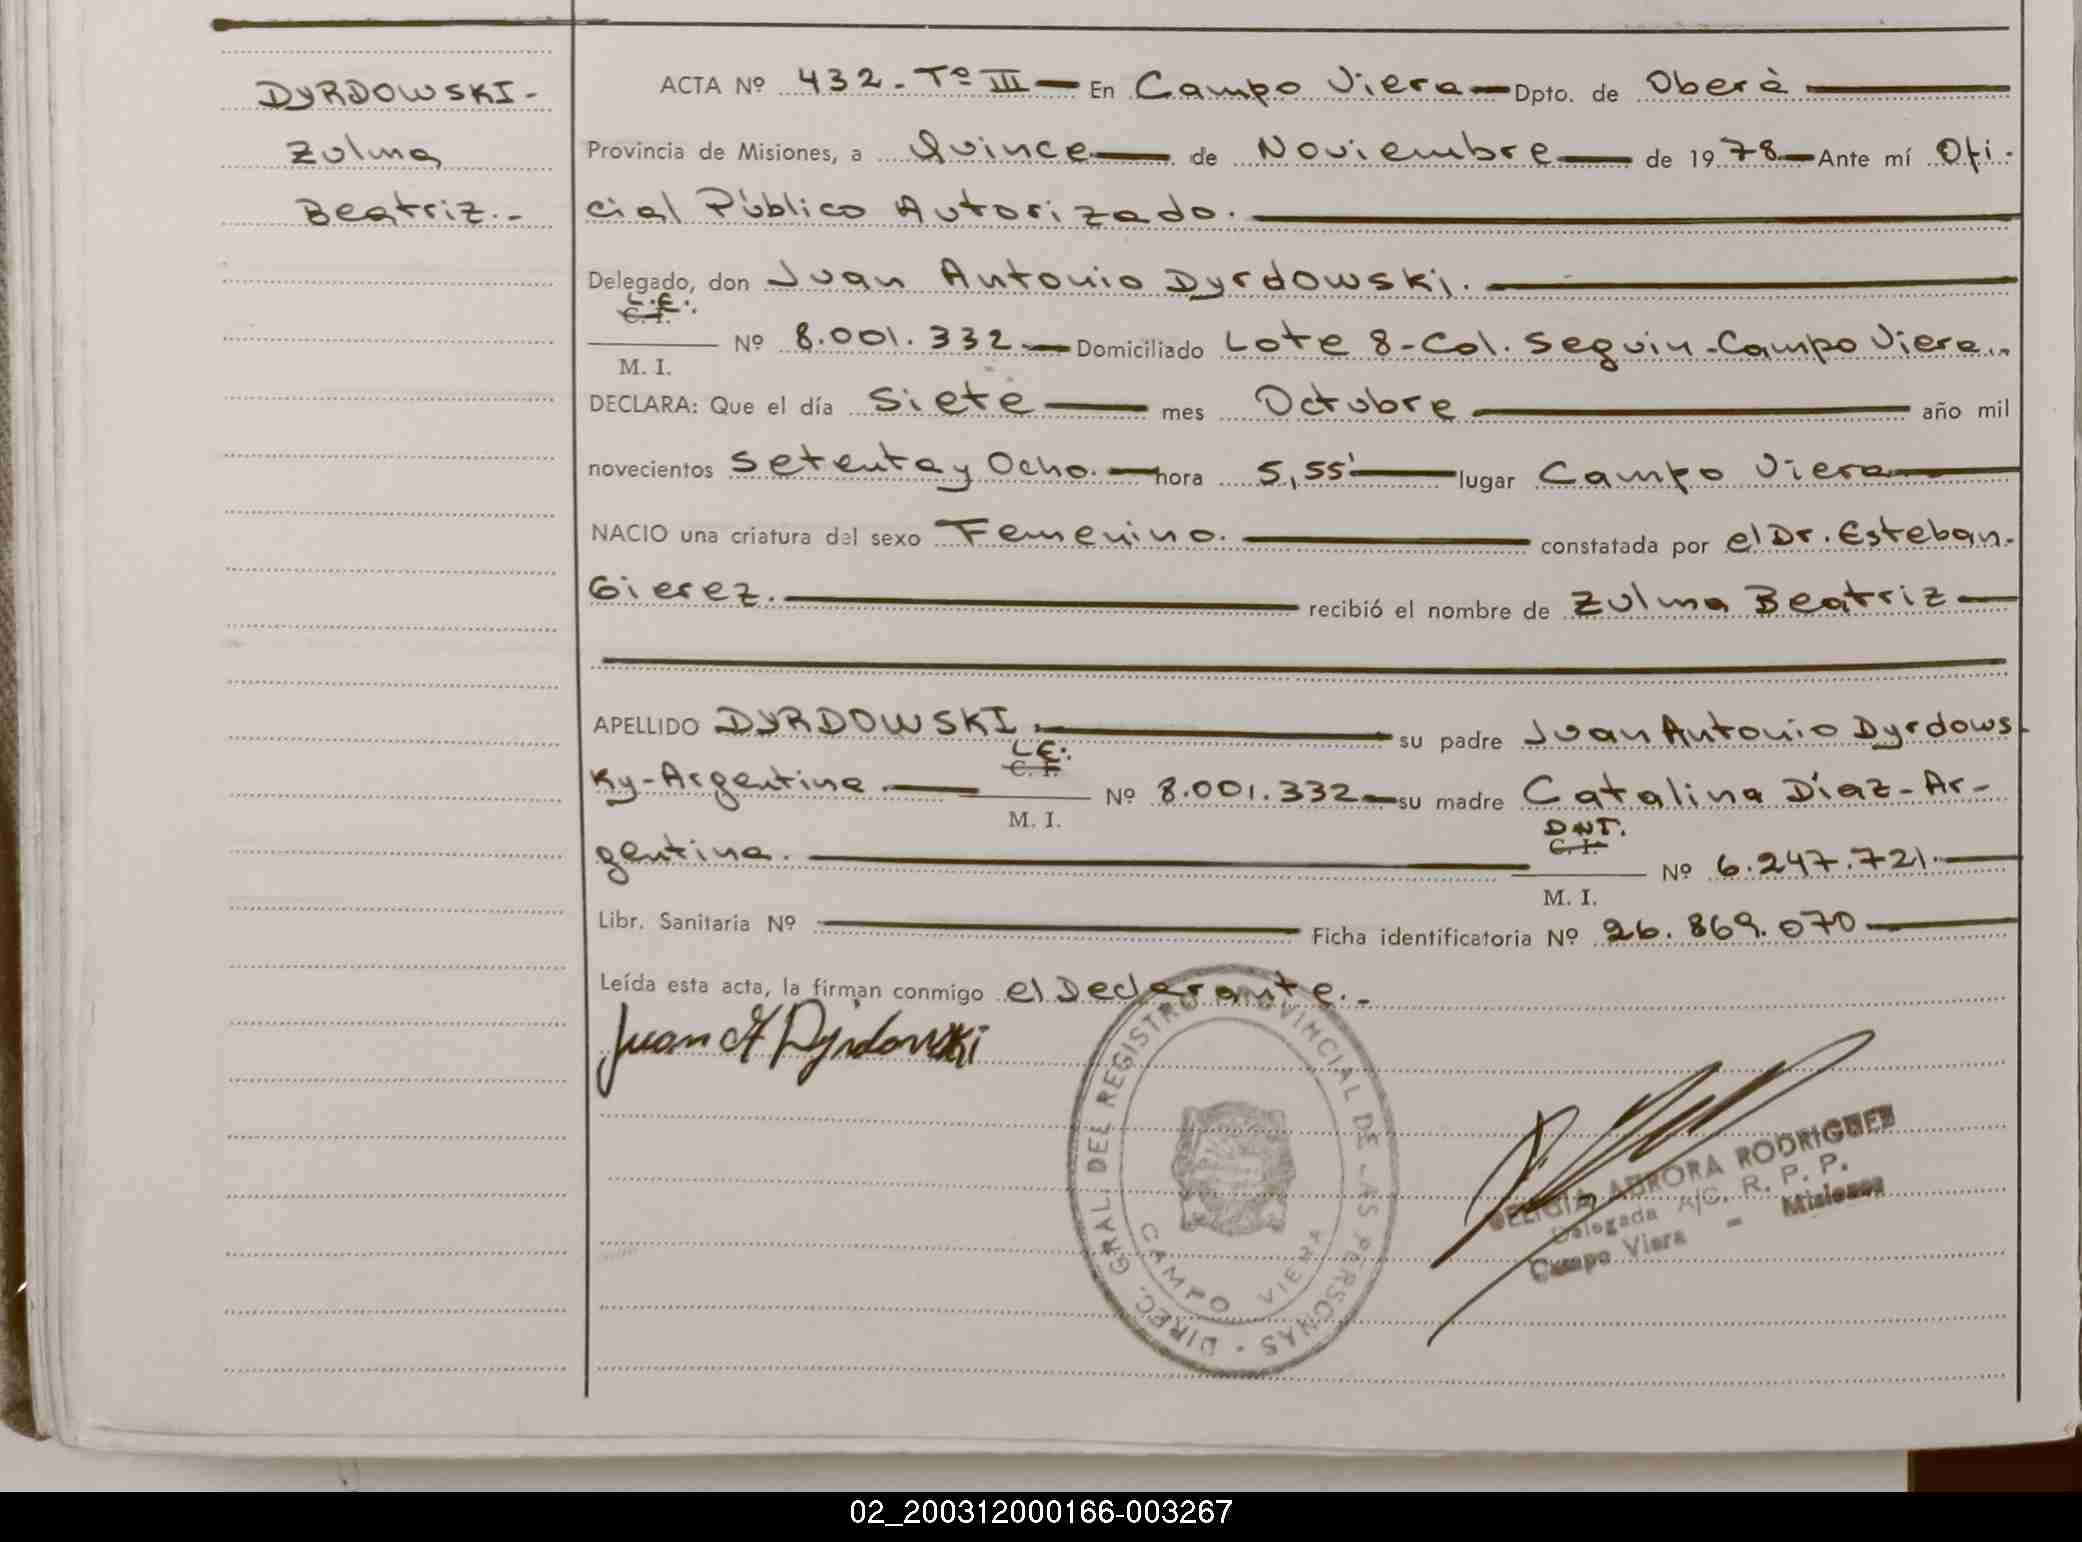 DYRDOWSKI-
Zulma
Beatriz.-
ACTA Nº 432 - Tº III — En Campo Viera — Dpto. de Oberà
Provincia de Misiones, a Quince — de Noviembre — de 1978 — Ante mí Ofi-
cial Público Autorizado.
Delegado, don Juan Antonio Dyrdowski.
L.E.
C. I.
M. I. Nº 8.001.332 — Domiciliado Lote 8 - Col. Seguin - Campo Viera.
DECLARA: Que el día Siete — mes Octubre — año mil
novecientos Setenta y Ocho. — hora 5,55' — lugar Campo Viera
NACIO una criatura del sexo Femenino. — constatada por el Dr. Esteban-
Gierez. — recibió el nombre de Zulma Beatriz —
APELLIDO DYRDOWSKI. — su padre Juan Antonio Dyrdows-
L.E.:
C. I.
Ky - Argentina — M. I. Nº 8.001.332 — su madre Catalina Díaz - Ar-
DNT.
C. I.
gentina. — M. I. Nº 6.247.721. —
Libr. Sanitaria Nº — Ficha identificatoria Nº 26.869.070 —
Leída esta acta, la firman conmigo el Declarante.-
Juan A Dyrdowski
DIREC. GRAL. DEL REGISTRO PROVINCIAL DE LAS PERSONAS
CAMPO VIERA
AURORA RODRIGUEZ
Delegada A/C. R. P. P.
Campo Viera - Misiones
02_200312000166-003267